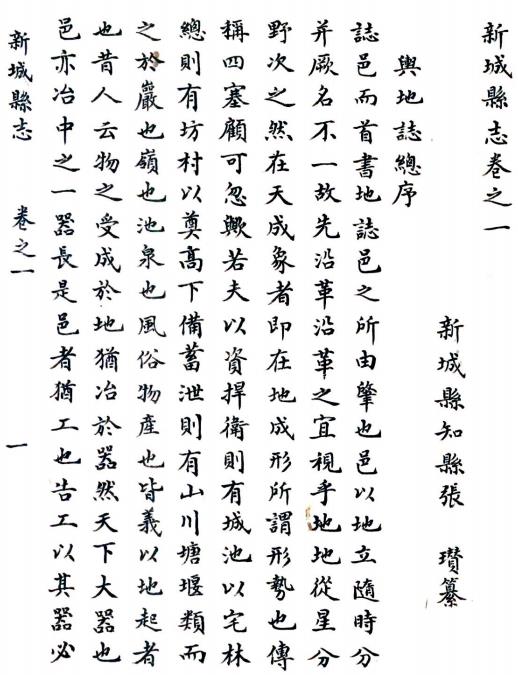 新城縣志卷之一
新城縣知縣張　瓚纂
輿地誌總序
誌邑而首書地誌邑之所由肇也邑以地立隨時分
并厥名不一故先沿革沿革之宜視乎地地從星分
野次之然在天成象者即在地成形所謂形勢也傳
稱四塞顧可忽歟若夫以資捍衛則有城池以宅林
總則有坊村以奠高下備蓄泄則有山川塘堰類而
之於巖也嶺也池泉也風俗物產也皆義以地起者
也昔人云物之受成於地猶冶於器然天下大器也
邑亦冶中之一器長是邑者猶工也告工以其器必
新城縣志　卷之一　一